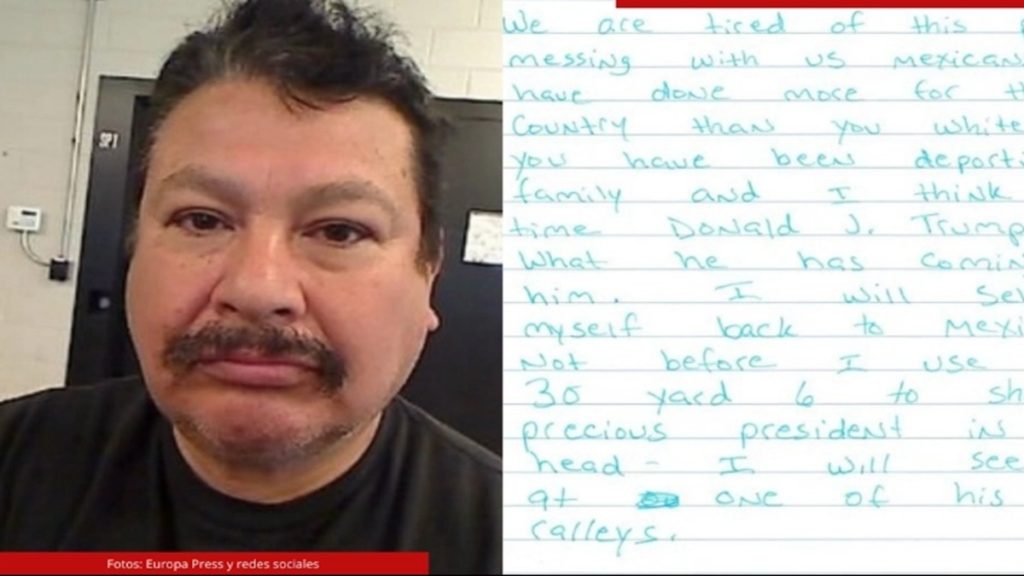 SP1
We are tired of this
messing with us mexican
have done more for th
Country than you white
you have been deporti
family and I think
time Donald J. Trump
What he has comin
him. I will Sel
myself back to mexi
Not before I use
30 yard 6 to sh
precious president in
head - I will see
at one of his
ralleys.
Fotos: Europa Press y redes sociales